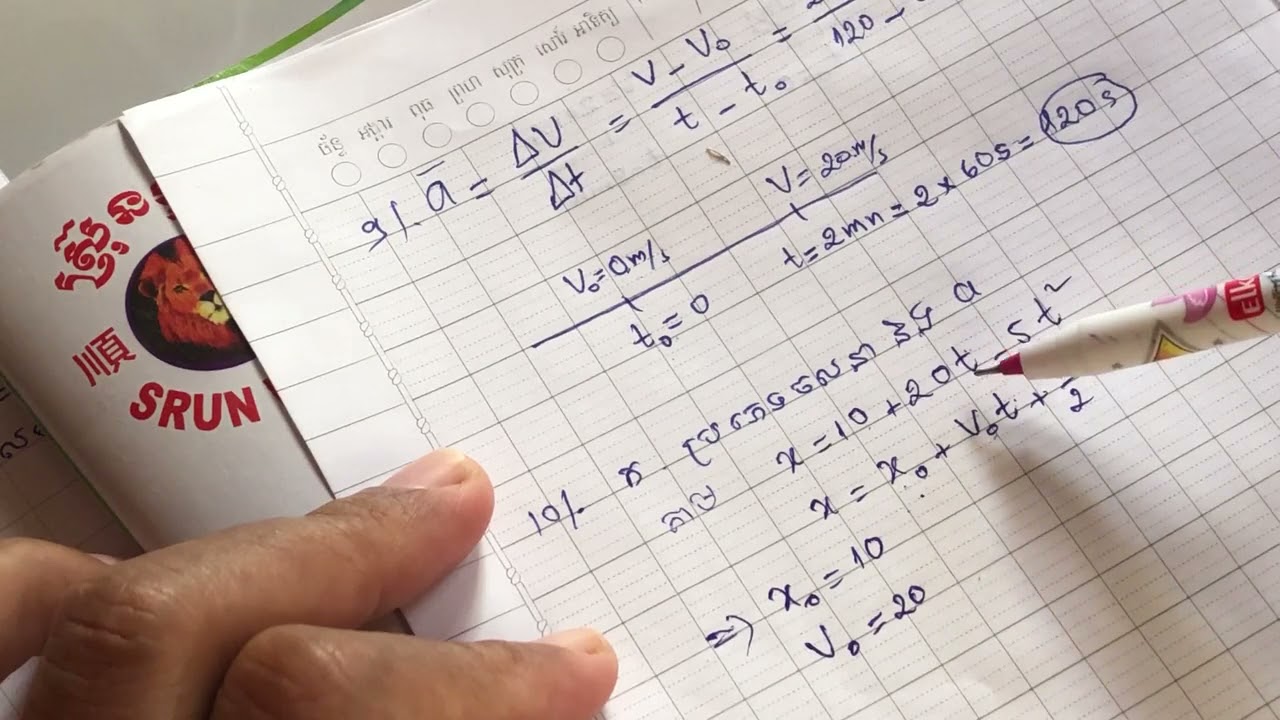 ច័ន្ទ អង្គារ ពុធ ព្រហ សុក្រ សៅរ៍ អាទិត្យ
9/. a̅ = ΔV/Δt = (V - V₀)/(t - t₀) =
120 -
V₀ = 0m/s V = 20m/s
t₀ = 0 t = 2mn = 2 × 60s = 120s
10/. ក. ប្រភេទចលនា និង a
តាម x = 10 + 20t - 5t²
x = x₀ + V₀t + 2
⇒ x₀ = 10
V₀ = 20
順
SRUN
Elk